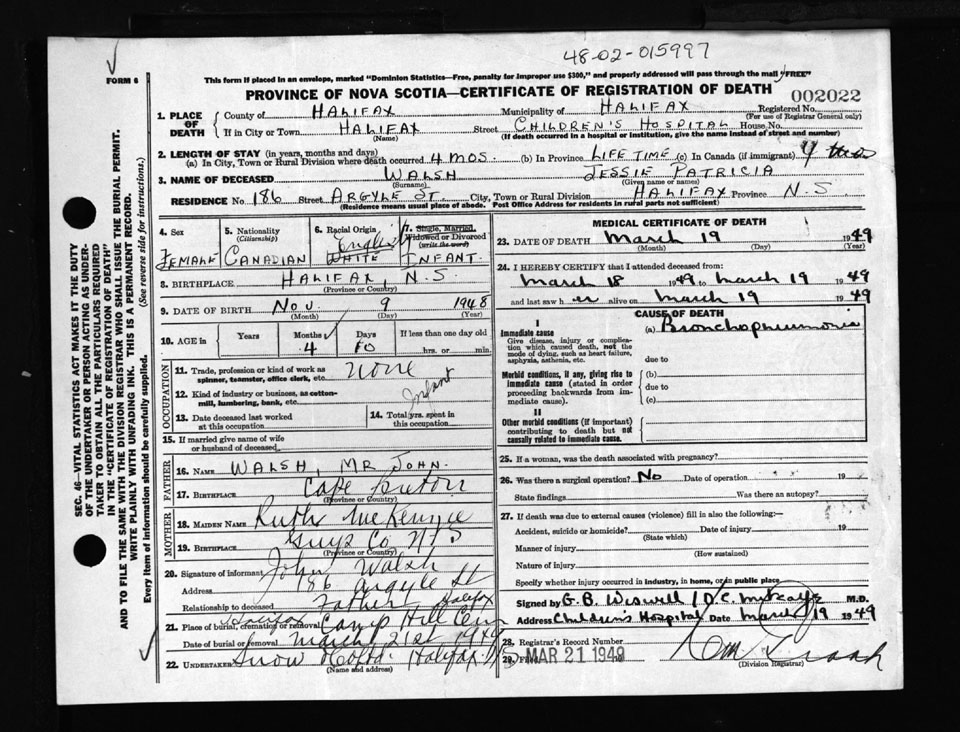 48-02-015997
FORM 6
This form if placed in an envelope, marked "Dominion Statistics—Free, penalty for improper use $300," and properly addressed will pass through the mail "FREE"
PROVINCE OF NOVA SCOTIA—CERTIFICATE OF REGISTRATION OF DEATH
002022
1. PLACE OF DEATH
County of HALIFAX Municipality of HALIFAX Registered No.
(For use of Registrar General only)
If in City or Town HALIFAX Street CHILDREN'S HOSPITAL House No.
(Name) (If death occurred in a hospital or institution, give the name instead of street and number)
2. LENGTH OF STAY (in years, months and days)
(a) In City, Town or Rural Division where death occurred 4 MOS. (b) In Province LIFE TIME (c) In Canada (if immigrant) 4
3. NAME OF DECEASED WALSH JESSIE PATRICIA
(Surname) (Given name or names)
RESIDENCE No. 186 Street ARGYLE ST. City, Town or Rural Division HALIFAX Province N.S
(Residence means usual place of abode. Post Office Address for residents in rural parts not sufficient)
4. Sex FEMALE
5. Nationality (Citizenship) CANADIAN
6. Racial Origin English WHITE
7. Single, Married, Widowed or Divorced (write the word) INFANT.
8. BIRTHPLACE HALIFAX, N.S.
(Province or Country)
9. DATE OF BIRTH NOV. 9 1948
(Month) (Day) (Year)
10. AGE in Years Months 4 Days 10 If less than one day old hrs. or min.
OCCUPATION
11. Trade, profession or kind of work as spinner, teamster, office clerk, etc. none
12. Kind of industry or business, as cotton-mill, lumbering, bank, etc. Infant
13. Date deceased last worked at this occupation
14. Total yrs. spent in this occupation
15. If married give name of wife or husband of deceased
FATHER
16. NAME WALSH, MR JOHN.
17. BIRTHPLACE Cape Breton
(Province or Country)
MOTHER
18. MAIDEN NAME Ruth McKenzie
19. BIRTHPLACE Guys Co. N.S
(Province or Country)
20. Signature of informant John Walsh
Address 186 Argyle St
Relationship to deceased Father Halifax
21. Place of burial, cremation or removal Halifax Camp Hill Cem
Date of burial or removal March 21st 1949
22. UNDERTAKER Snow Halifax NS
(Name and address)
MEDICAL CERTIFICATE OF DEATH
23. DATE OF DEATH March 19 1949
(Month) (Day) (Year)
24. I HEREBY CERTIFY that I attended deceased from:
March 18 1949 to March 19 1949
and last saw her alive on March 19 1949
CAUSE OF DEATH
I
Immediate cause (a) Bronchopneumonia
Give disease, injury or complication which caused death, not the mode of dying, such as heart failure, asphyxia, asthenia, etc. due to
Morbid conditions, if any, giving rise to immediate cause (stated in order proceeding backwards from immediate cause). (b)
due to
(c)
II
Other morbid conditions (if important) contributing to death but not causally related to immediate cause.
25. If a woman, was the death associated with pregnancy?
26. Was there a surgical operation? No Date of operation 19
State findings Was there an autopsy?
27. If death was due to external causes (violence) fill in also the following:—
Accident, suicide or homicide? Date of injury 19
(State which)
Manner of injury
(How sustained)
Nature of injury
Specify whether injury occurred in industry, in home, or in public place
Signed by G. B. Wiswell / D.C. Metcalfe M.D.
Address Children's Hospital Date March 19 1949
28. Registrar's Record Number
29. Filed MAR 21 1949
(Division Registrar)
SEC. 46—VITAL STATISTICS ACT MAKES IT THE DUTY
OF THE UNDERTAKER OR PERSON ACTING AS UNDER-
TAKER TO OBTAIN ALL THE PARTICULARS REQUIRED
IN THE "CERTIFICATE OF REGISTRATION OF DEATH"
AND TO FILE THE SAME WITH THE DIVISION REGISTRAR WHO SHALL ISSUE THE BURIAL PERMIT.
WRITE PLAINLY WITH UNFADING INK. THIS IS A PERMANENT RECORD.
Every item of information should be carefully supplied. (See reverse side for instructions.)